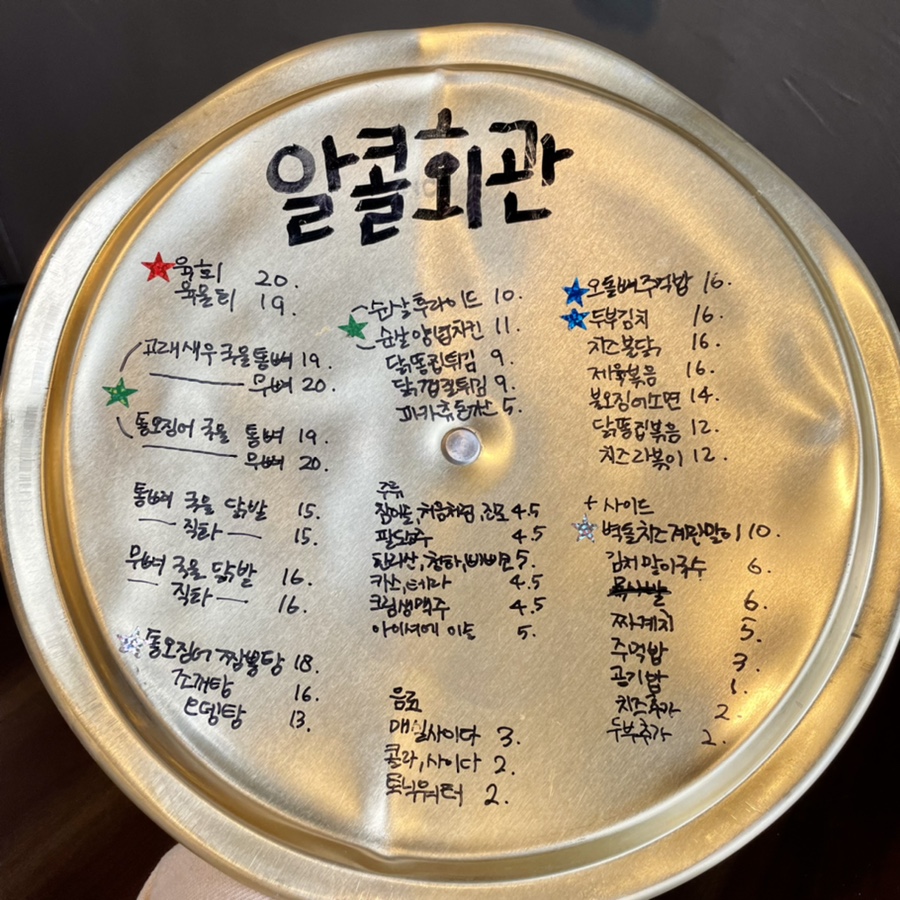 알콜회관
육회 20.
육물회 19.
고래새우 국물통뼈 19.
무뼈 20.
통오징어 국물 통뼈 19.
무뼈 20.
통뼈 국물 닭발 15.
직화 15.
무뼈 국물 닭발 16.
직화 16.
통오징어 짬뽕탕 18.
조개탕 16.
오뎅탕 13.
순살후라이드 10.
순살양념치킨 11.
닭똥집튀김 9.
닭껍질튀김 9.
피카츄돈까스 5.
주류
참이슬, 처음처럼, 진로 4.5
4.5
한라산, 청하, 5.
카스, 테라 4.5
크림생맥주 4.5
아이셔에 이슬 5.
음료
매실사이다 3.
콜라, 사이다 2.
토닉워터 2.
오돌뼈주먹밥 16.
두부김치 16.
치즈불닭 16.
제육볶음 16.
불오징어소면 14.
닭똥집볶음 12.
치즈라볶이 12.
+ 사이드
벽돌치즈계란말이 10.
김치말이국수 6.
6.
짜계치 5.
주먹밥 3.
공기밥 1.
치즈추가 2.
두부추가 2.